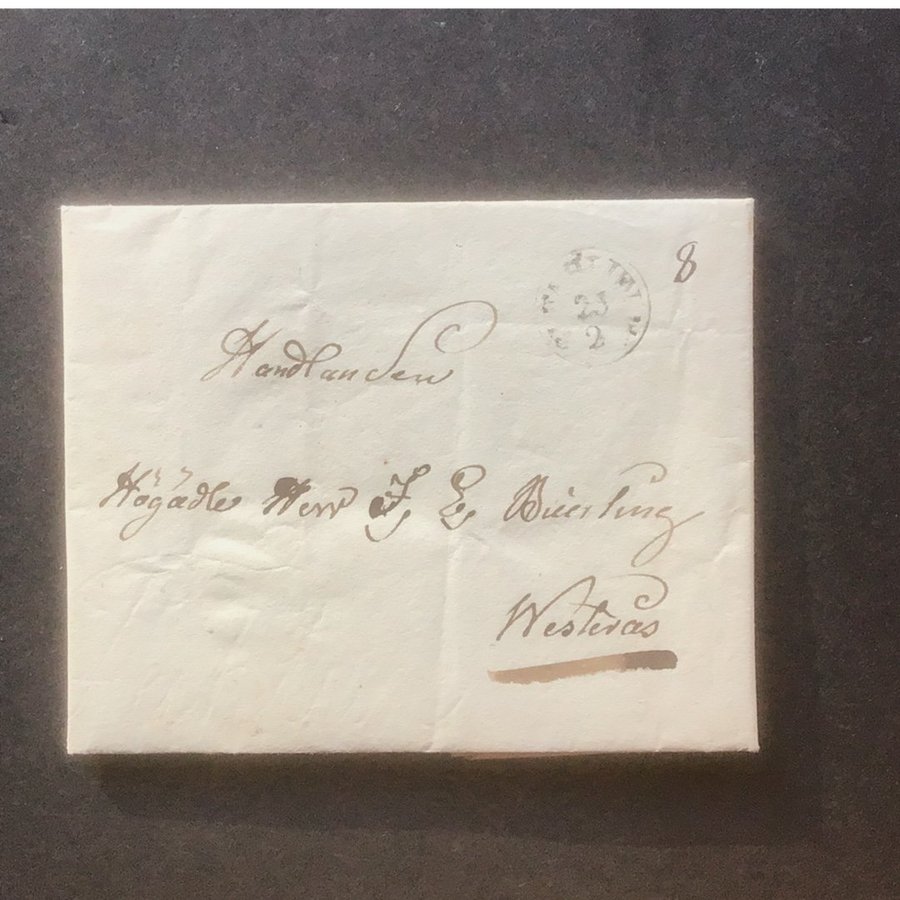 8
Handlanden
Högädle Herr J. E. Büerling
Westerås